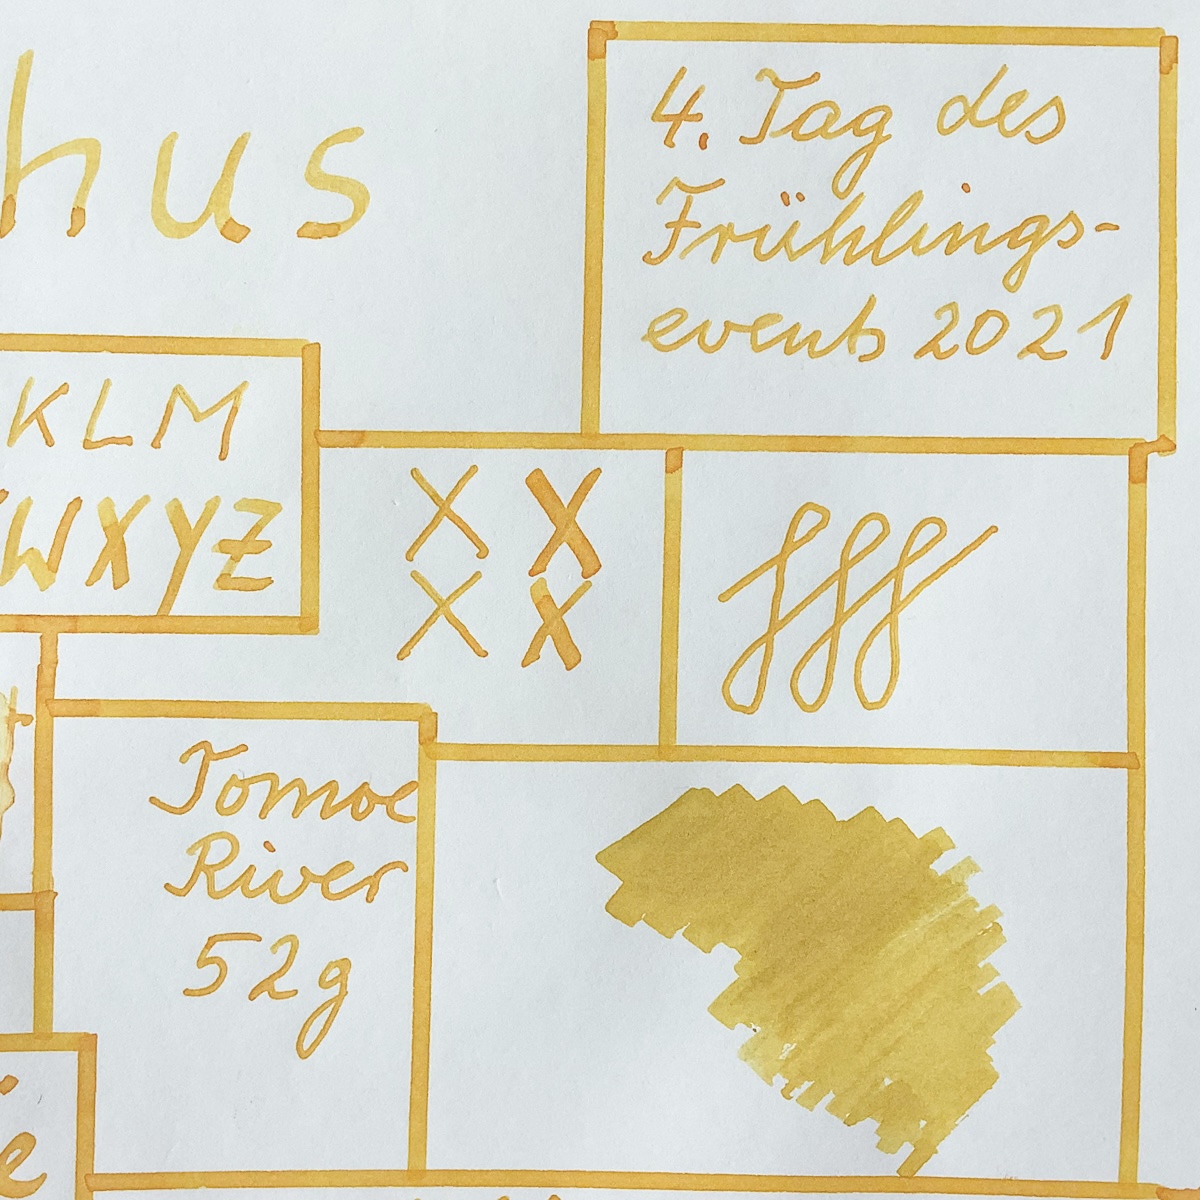 hus
4. Tag des
Frühlings-
events 2021
KLM
WXYZ
X X
X X
Tomoe
River
52g